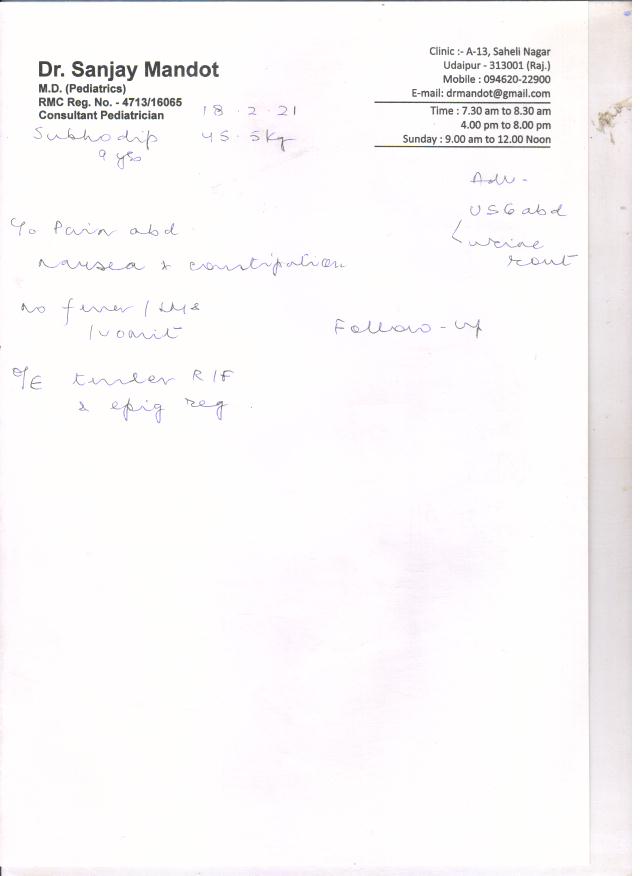 Dr. Sanjay Mandot
M.D. (Pediatrics)
RMC Reg. No. - 4713/16065
Consultant Pediatrician
Clinic :- A-13, Saheli Nagar
Udaipur - 313001 (Raj.)
Mobile : 094620-22900
E-mail: drmandot@gmail.com
Time : 7.30 am to 8.30 am
4.00 pm to 8.00 pm
Sunday : 9.00 am to 12.00 Noon
18.2.21
Subhodip 45.5kg
9 yrs
Adv-
USG abd
urine
rout
c/o Pain abd
nausea & constipation
no fever /
/vomit
Follow-up
O/E tender RIF
& epig reg.